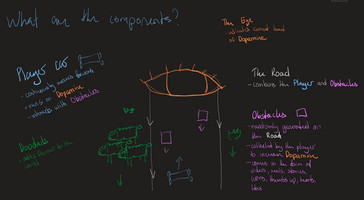 What are the components?
The Eye
- indicates current level
of Dopamine
Player Car
- continuously moves forwards
- runs on Dopamine
- interacts with Obstacles
The Road
- contains the Player and Obstacles
Obstacles
- randomly generated on
the Road
- collected by the player
to increase Dopamine
- comes in the form of
videos, reels, stories,
likes
Doodads
- adds flavour to the